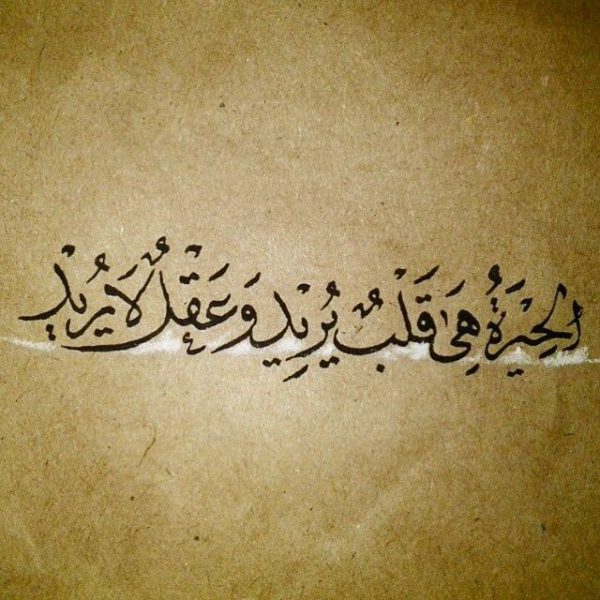 الحِيْرَةُ هِيَ قَلْبٌ يُرِيْدُ وَ عَقْلٌ لَا يُرِيْدُ